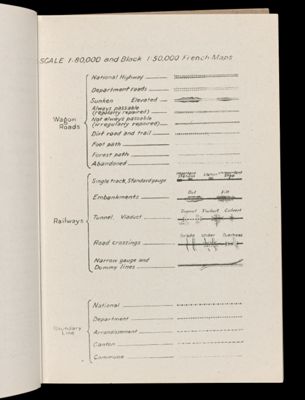 SCALE 1-80,000 and Black 1-50,000 French Maps
Wagon Roads
National Highway
Department roads
Sunken Elevated
Always passable
(regularly repaired)
Not always passable
(irregularly repaired)
Dirt road and trail
Foot path
Forest path
Abandoned
Railways
Single track, Standard gauge
Station
Embankments
Cut Fill
Tunnel, Viaduct
Viaduct Culvert
Road crossings
Grade Under Overhead
Narrow gauge and
Dummy lines
Boundary
Line
National
Department
Arrondissement
Canton
Commune